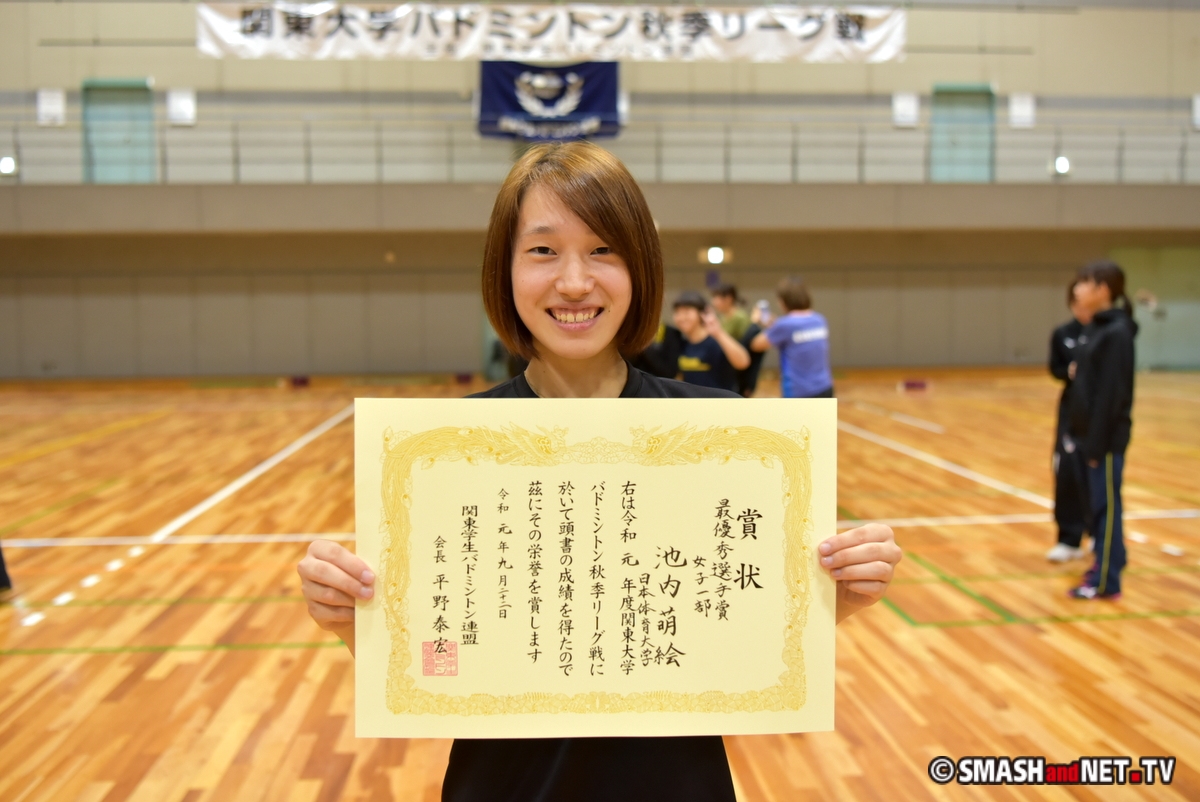 関東大学バドミントン秋季リーグ戦
賞状
最優秀選手賞
女子一部
池内萌絵
日本体育大学
右は令和 元 年度関東大学
バドミントン秋季リーグ戦に
於いて頭書の成績を得たので
茲にその栄誉を賞します
令和 元 年 九 月 二十二 日
関東学生バドミントン連盟
会長 平野泰宏
©SMASHandNET.TV